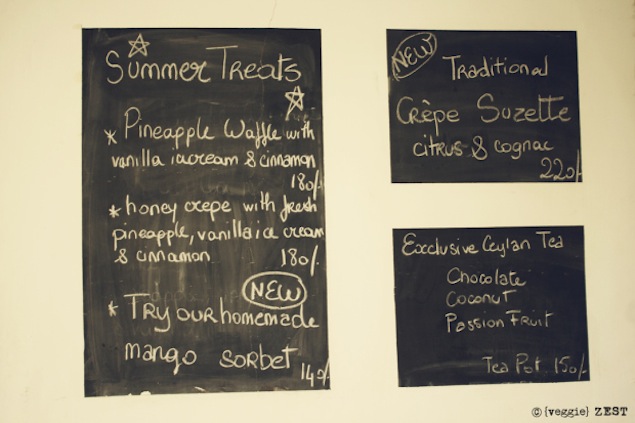 Summer Treats
* Pineapple Waffle with
vanilla icecream & cinnamon
180/-
* honey crepe with fresh
pineapple, vanilla ice cream
& cinnamon 180/-
NEW
* Try our homemade
mango sorbet
140/-
NEW
Traditional
Crêpe Suzette
citrus & cognac
220/-
Exclusive Ceylan Tea
Chocolate
Coconut
Passion Fruit
Tea Pot 150/-
© {veggie} ZEST